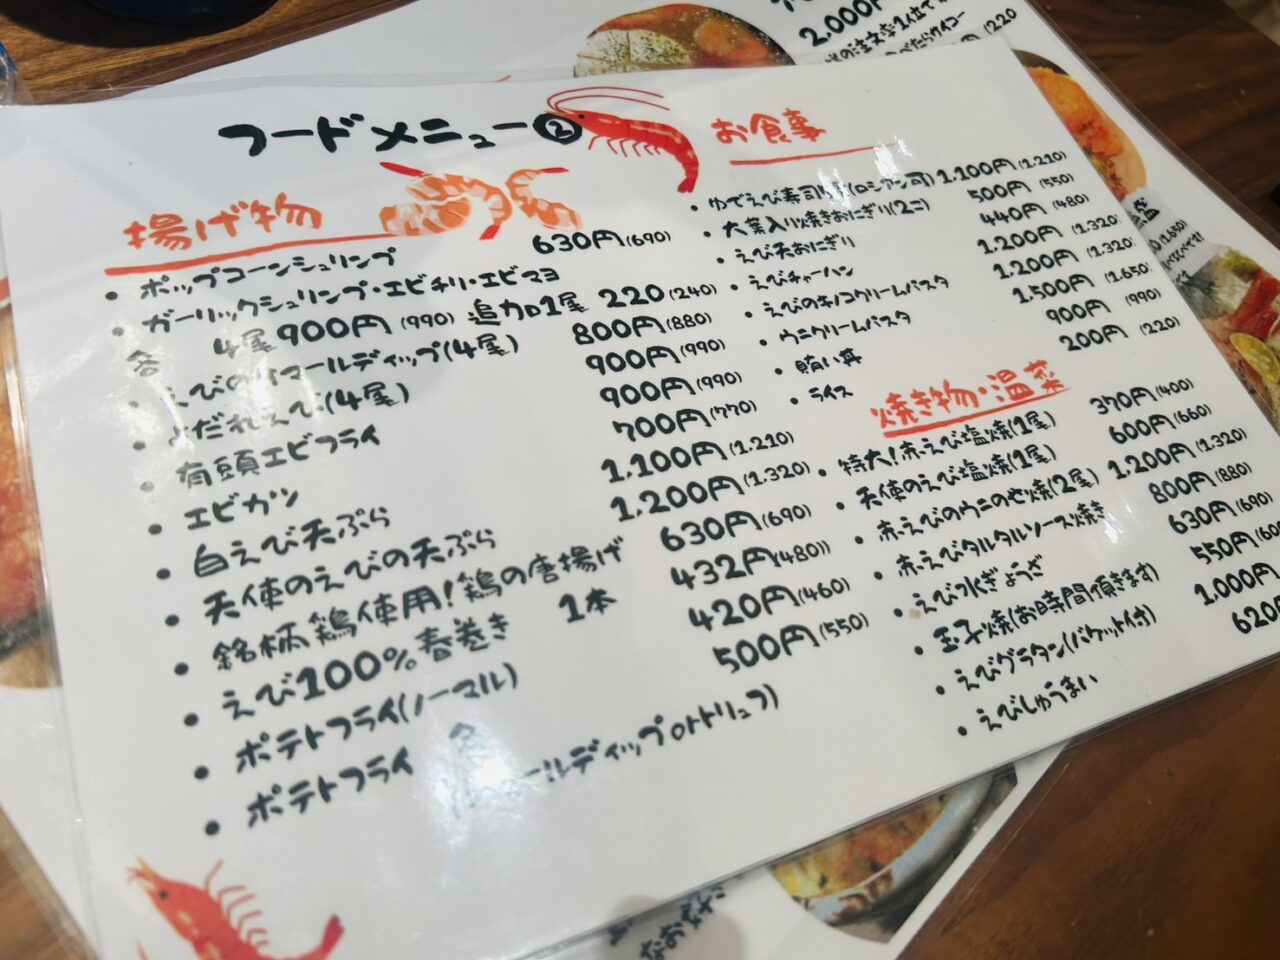 フードメニュー②
揚げ物
・ポップコーンシュリンプ 630円(690)
・ガーリックシュリンプ・エビチリ・エビマヨ
各 4尾900円(990) 追加1尾 220(240)
・えびのオマールディップ(4尾) 800円(880)
・よだれえび(4尾) 900円(990)
・有頭エビフライ 900円(990)
・エビカツ 700円(770)
・白えび天ぷら 1.100円(1.210)
・天使のえびの天ぷら 1.200円(1.320)
・銘柄鶏使用!鶏の唐揚げ 630円(690)
・えび100%春巻き 1本 432円(480))
・ポテトフライ(ノーマル) 420円(460)
・ポテトフライ 各 500円(550)
ールディップorトリュフ)
お食事
・ゆでえび寿司 (ロシアン可) 1.100円(1.210)
・大葉入り焼きおにぎり(2ニ) 500円(550)
・えび天おにぎり 440円(480)
・えびチャーハン 1.200円(1.320)
・えびのキノコクリームパスタ 1.200円(1.320)
・ウニクリームパスタ 1.500円(1.650)
・賄い丼 900円(990)
・ライス 200円(220)
焼き物・温菜
・特大!赤えび塩焼(1尾) 370円(400)
・天使のえび塩焼(1尾) 600円(660)
・赤えびのウニのせ焼(2尾) 1.200円(1.320)
・赤えびタルタルソース焼き 800円(880)
・えび水ぎょうざ 630円(690)
・玉子焼(お時間頂きます) 550円(60
・えびグラタン(バケット付) 1.000円
・えびしゅうまい 620円
2.000円